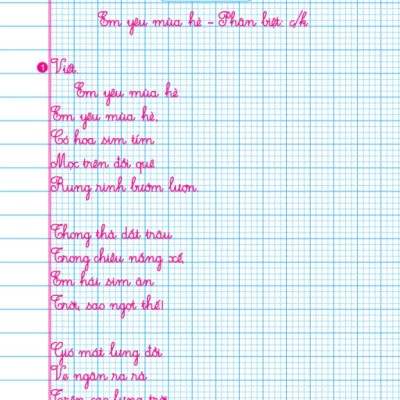 Em yêu mùa hè - Phân biệt: c/k
1 Viết.
Em yêu mùa hè
Em yêu mùa hè,
Có hoa sim tím
Mọc trên đồi quê
Rung rinh bướm lượn.
Thong thả dắt trâu
Trong chiều nắng xế,
Em hái sim ăn
Trời, sao ngọt thế!
Gió mát lưng đồi
Ve ngân ra rả
Trên cao lưng trời